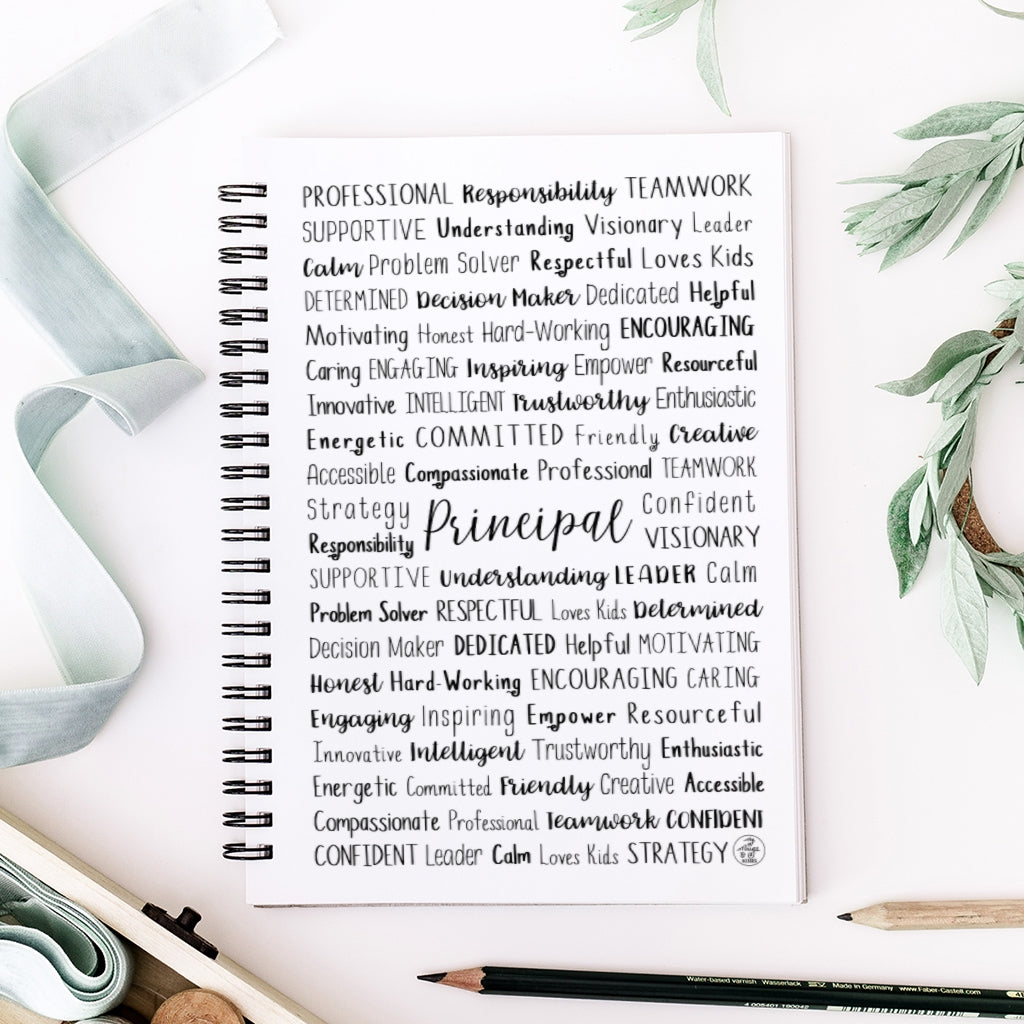 PROFESSIONAL Responsibility TEAMWORK
SUPPORTIVE Understanding Visionary Leader
Calm Problem Solver Respectful Loves Kids
DETERMINED Decision Maker Dedicated Helpful
Motivating Honest Hard-Working ENCOURAGING
Caring ENGAGING Inspiring Empower Resourceful
Innovative INTELLIGENT Trustworthy Enthusiastic
Energetic COMMITTED Friendly Creative
Accessible Compassionate Professional TEAMWORK
Strategy Principal Confident
Responsibility VISIONARY
SUPPORTIVE Understanding LEADER Calm
Problem Solver RESPECTFUL Loves Kids Determined
Decision Maker DEDICATED Helpful MOTIVATING
Honest Hard-Working ENCOURAGING CARING
Engaging Inspiring Empower Resourceful
Innovative Intelligent Trustworthy Enthusiastic
Energetic Committed Friendly Creative Accessible
Compassionate Professional Teamwork CONFIDENT
CONFIDENT Leader Calm Loves Kids STRATEGY
Water-based varnish Wasserlack Made in Germany www.Faber-Castell.com
4 005401 190042